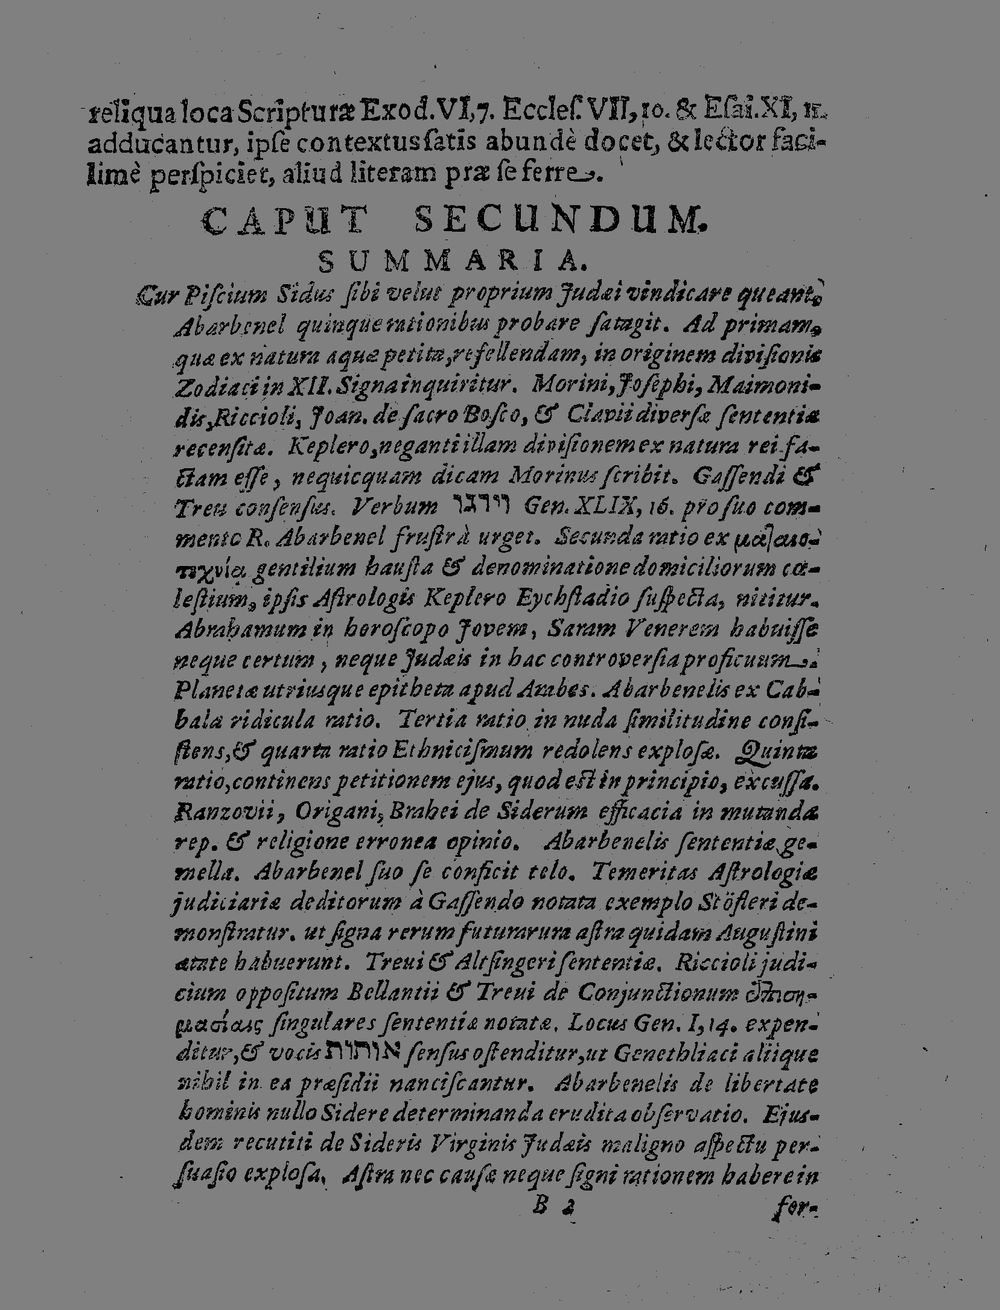 reliqua loca Scripturæ Exod. VI, 7. Eccles. VII, 10. & Esai. XI, 11.
adducantur, ipſe contextus ſatis abundè docet, & lector faci-
limè perſpiciet, aliud literam præ ſe ferre.
CAPUT SECUNDUM.
SUMMARIA.
Cur Piſcium Sidus ſibi velut proprium Judæi vindicare queant,
Abarbenel quinque rationibus probare ſatagit. Ad primam,
quæ ex natura aquæ petita, refellendam, in originem diviſionis
Zodiaci in XII. Signa inquiritur. Morini, Joſephi, Maimoni-
dis, Riccioli, Joan. de ſacro Boſco, & Clavii diverſæ ſententiæ
recenſitæ. Keplero, neganti illam diviſionem ex natura rei fa-
ctam eſſe, nequicquam dicam Morinus ſcribit. Gaſſendi &
Treu conſenſus. Verbum וירגו Gen. XLIX, 16. pro ſuo com-
mento R. Abarbenel fruſtrà urget. Secunda ratio ex ματαιο-
τεχνία gentilium hauſta & denominatione domiciliorum cœ-
leſtium, ipſis Aſtrologis Keplero Eychſtadio ſuſpecta, nititur.
Abrahamum in horoſcopo Jovem, Saram Venerem habuiſſe
neque certum, neque Judæis in hac controverſia proficuum.
Planetæ utriusque epitheta apud Arabes. Abarbenelis ex Cab-
bala ridicula ratio. Tertia ratio in nuda ſimilitudine conſi-
ſtens, & quarta ratio Ethniciſmum redolens exploſæ. Quinta
ratio, continens petitionem ejus, quod eſt in principio, excuſſa.
Ranzovii, Origani, Brahei de Siderum efficacia in mutanda
rep. & religione erronea opinio. Abarbenelis ſententiæ ge-
mella. Abarbenel ſuo ſe conficit telo. Temeritas Aſtrologiæ
judiciariæ deditorum à Gaſſendo notata exemplo Stöfleri de-
monſtratur. ut ſigna rerum futurarum aſtra quidam Auguſtini
ætate habuerunt. Treui & Altſingeri ſententiæ. Riccioli judi-
cium oppoſitum Bellantii & Treui de Conjunctionum ἐπιση-
μασίαις ſingulares ſententiæ notatæ. Locus Gen. I, 14. expen-
ditur, & vocis אותות ſenſus oſtenditur, ut Genethliaci aliique
nihil in ea præſidii nanciſcantur. Abarbenelis de libertate
hominis nullo Sidere determinanda erudita obſervatio. Ejus-
dem recutiti de Sideris Virginis Judæis maligno aſpectu per-
ſuaſio exploſa. Aſtra nec cauſæ neque ſigni rationem habere in
B 2 for-